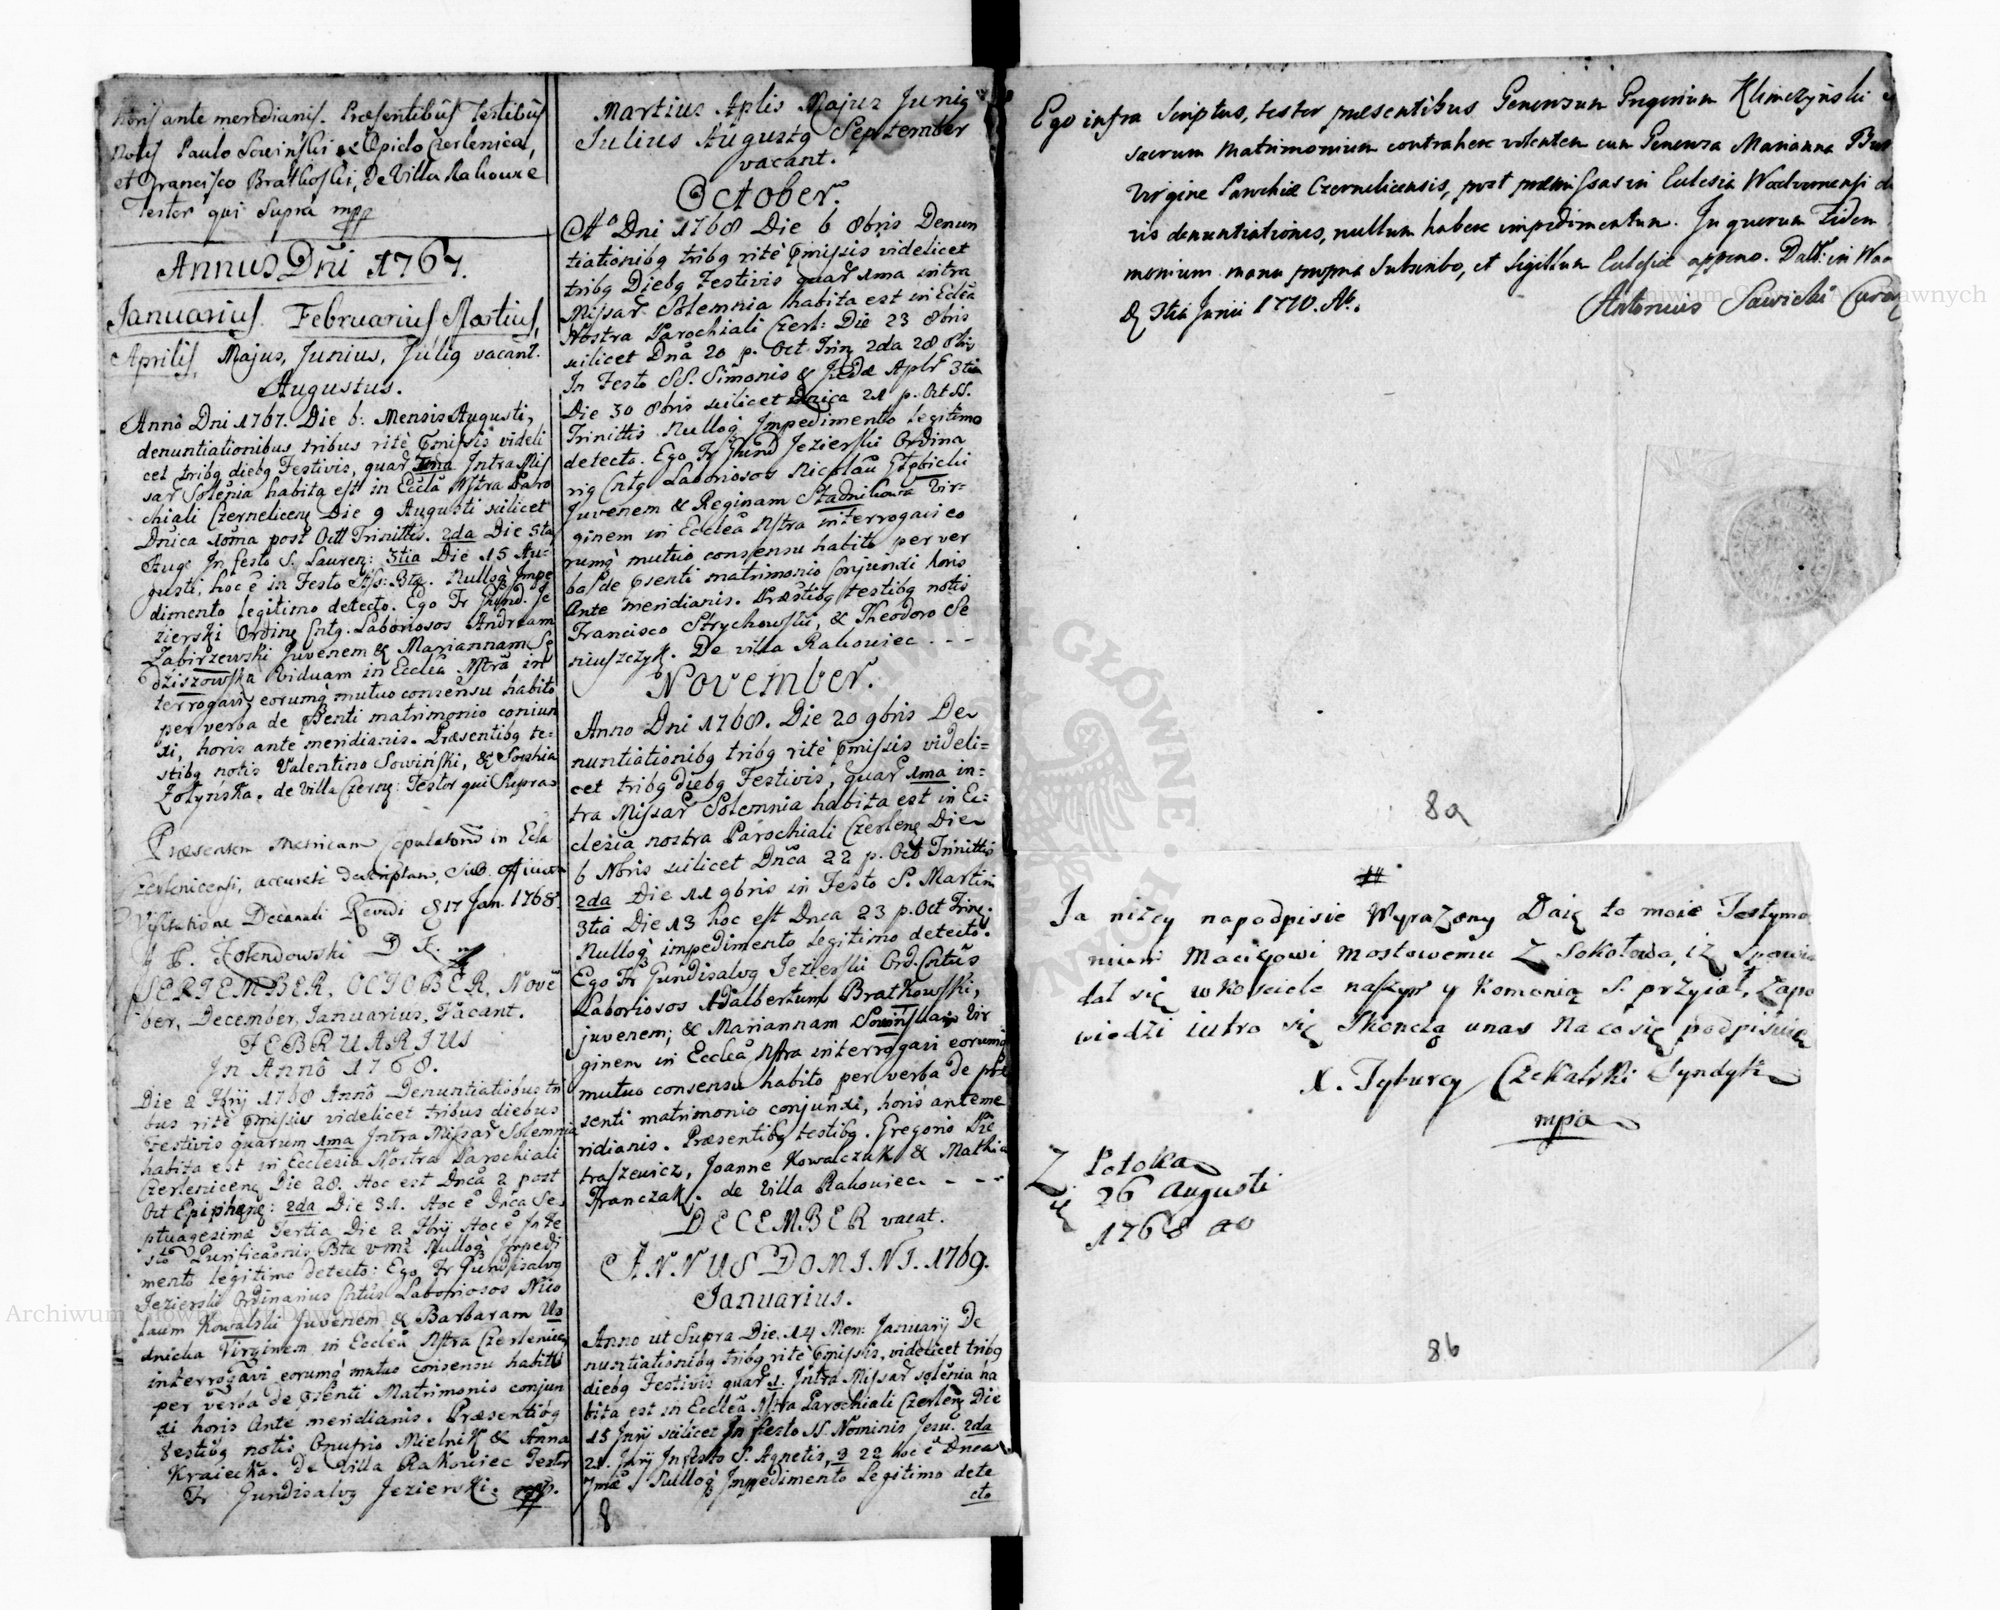 horis ante meridianis. Præsentibus Testibus
Notis Paulo Sowinski ex Opido Czerlenica,
et Francisco Bratkoski, de Villa Rakowie
Testor qui Supra mpp
Annus Dñi 1767.
Januarius. Februarius Martius,
Aprilis, Majus, Junius, Julig vacant.
Augustus.
Anno Dni 1767. Die 6: Mensis Augusti,
denuntiationibus tribus ritè pmissis videli
cet tribg diebg Festivis, quar 1ma Intra Mis
sar Solenia habita est in Eccla Nstra Paro
chiali Czerneliceng Die 9 Augusti scilicet
Dnica 10ma post Oct Trinittis. 2da Die
Aug: In festo S. Laureng: 3tia Die 15 Au-
gusti, hoc è in Festo Ass: Btæ. Nullog Impe
dimento legitimo detecto. Ego Fr Gund. Je
zierski Ording Cntg. Laboriosos Andream
Zabirzewski Juvenem & Mariannam Sę
dziszowska Viduam in Ecclea Nstra in
terrogavi eorumq mutuo consensu habito
per verba de psenti matrimonio coniun
xi, horis ante meridianis. Præsentibg te-
stibg notis Valentino Sowiński, & Sophia
Zołyńska. de Villa Czerng: Testor qui Supra
Præsentem Metricam Copulatorum in Eccla
Czerlenicensi, accurate descriptam, sub officiosa
Visitatione Decanali Revidi d 17 Jan. 1768.
SEPTEMBER, OCTOBER, Nove
ber, December, Januarius, Vacant.
FEBRUARIUS
In Anno 1768.
Die 2 Fbrij 1768 Anno Denuntiatiobus tri
bus ritè pmissis videlicet tribus diebus
Festivis quarum 1ma Intra Missar Solemnia
habita est in Ecclesia Nostra Parochiali
Czerleniceng Die 28. Hoc est Dnca 2 post
Oct Epiphang: 2da Die 31. Hoc è Dnca Se
ptuagesima Tertia Die 2 Fbrij Hoc è In Fe
sto Purificaonis Btæ Vmæ Nullog Impedi
mento legitimo detecto: Ego Fr Gundisalvg
Jezierski Ordinarius Cntus Laboriosos Nico
laum Kowalski Juvenem & Barbaram Wo
dnicka Virginem in Ecclea Nstra Czerlenicen
interrogavi eorumq mutuo consensu habito
per verba de psenti Matrimonio conjun
xi horis Ante meridianis. Præsentibg
Testibg notis Onufrio Mielnik & Anna
Kraiecka. De Villa Rakowiec Testor
Fr Gundisalvg Jezierski. mpp.
Martius Aplis Majus Junig
Julius Augustg September
vacant.
October.
Ao Dni 1768 Die 6 8bris Denun
tiationibg tribg ritè pmissis videlicet
tribg Diebg Festivis quar 1ma intra
Missar Solemnia habita est in Eclea
Nostra Parochiali Czerl: Die 23 8bris
scilicet Dnca 20 p. Oct Trin 2da 28 8bris
In Festo SS. Simonis & Judæ Aplr 3tia
Die 30 8bris scilicet Dnica 21 p. Oct SS.
Trinittis Nullog Impedimento legitimo
detecto. Ego Fr Gund Jezierski Ordina
rig Cntg Laboriosos Nicolau Głębicki
Juvenem & Reginam Stadnikowa Vir-
ginem in Ecclea Nstra interrogavi eo
rumq mutuo consensu habito per ver
ba de psenti matrimonio Conjunxi horis
Ante meridianis. Præstibg testibg notis
Francisco Strychowski, & Theodoro Se
niuszczyk. De villa Rakowiec - - -
November.
Anno Dni 1768. Die 20 9bris De
nuntiationibg tribg ritè pmissis videli=
cet tribg diebg Festivis, quar 1ma in=
tra Missar Solemnia habita est in Ec=
clesia nostra Parochiali Czerleng Die
6 Nbris scilicet Dnca 22 p. Oct Trinittis
2da Die 11 9bris in Festo S. Martini
3tia Die 13 hoc est Dnca 23 p. Oct Trin.
Nullog impedimento legitimo detecto.
Ego Fr Gundisalvg Jezierski Ord. Cntus
Laboriosos Adalbertum Bratkowski,
juvenem; & Mariannam Sowinska Vir
ginem in Ecclea Nstra interrogavi eorumq
mutuo consensu habito per verba de præ
senti matrimonio conjunxi, horis anteme
ridianis. Præsentibg testibg. Gregorio Pie
traszewicz, Joanne Kowalczuk & Mathia
Franczak. de Villa Rakowiec - - -
DECEMBER vacat.
ANNUS DOMINI. 1769.
Januarius.
Anno ut Supra Die. 14 Men: Januarij De
nuntiationibg tribg ritè pmissis, videlicet tribg
diebg Festivis quar 1. Intra Missar solenia ha
bita est in Ecclea Nstra Parochiali Czerleng Die
15 Jnrij scilicet In festo SS. Nominis Jesu. 2da
21. Jnrij In festo S. Agnetis, 3 22 hoc è Dnca
7mæ Nullog Impedimento Legitimo dete
cto
8
Ego infra Scriptus, testor præsentibus Generosum Grigorium Klimczyński
sacrum Matrimonium contrahere volentem cum Generosa Marianna
Virgine Parochiæ Czernelicensis, post præmissas in Eclesia Wodvornensi
vis denuntiationes, nullum habere impedimentum. In quorum Fidem
monium manu propria Subscribo, et Sigillum Eclesiæ appono. Datt: in
D 3tia Junii 1770. Ao.
Antonius Sawicki
8a
Ja niżey napodpisie Wyrażony Daię to moie Testymo
nium Maciejowi Mostowemu Z Sokołowa, iż Spowia
dał się w kosciele naszym y Komonią S. przyiął, Zapo
wiedzi iutro się Skonczą unas Na co się podpisuię
X. Tyburcy Czekalski Syndyk
mpa
Z Potoka
26 Augusti
1768 ao
8b
Archiwum Główne Akt Dawnych